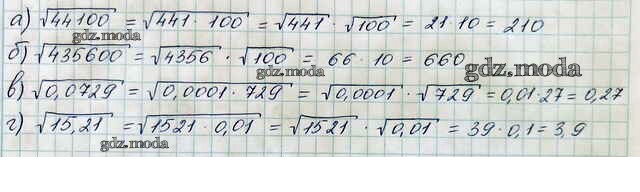 а) √44100 = √441 · 100 = √441 · √100 = 21 · 10 = 210
gdz.moda
б) √435600 = √4356 · √100 = 66 · 10 = 660
gdz.moda
gdz.moda
в) √0,0729 = √0,0001 · 729 = √0,0001 · √729 = 0,01 · 27 = 0,27
г) √15,21 = √1521 · 0,01 = √1521 · √0,01 = 39 · 0,1 = 3,9
gdz.moda